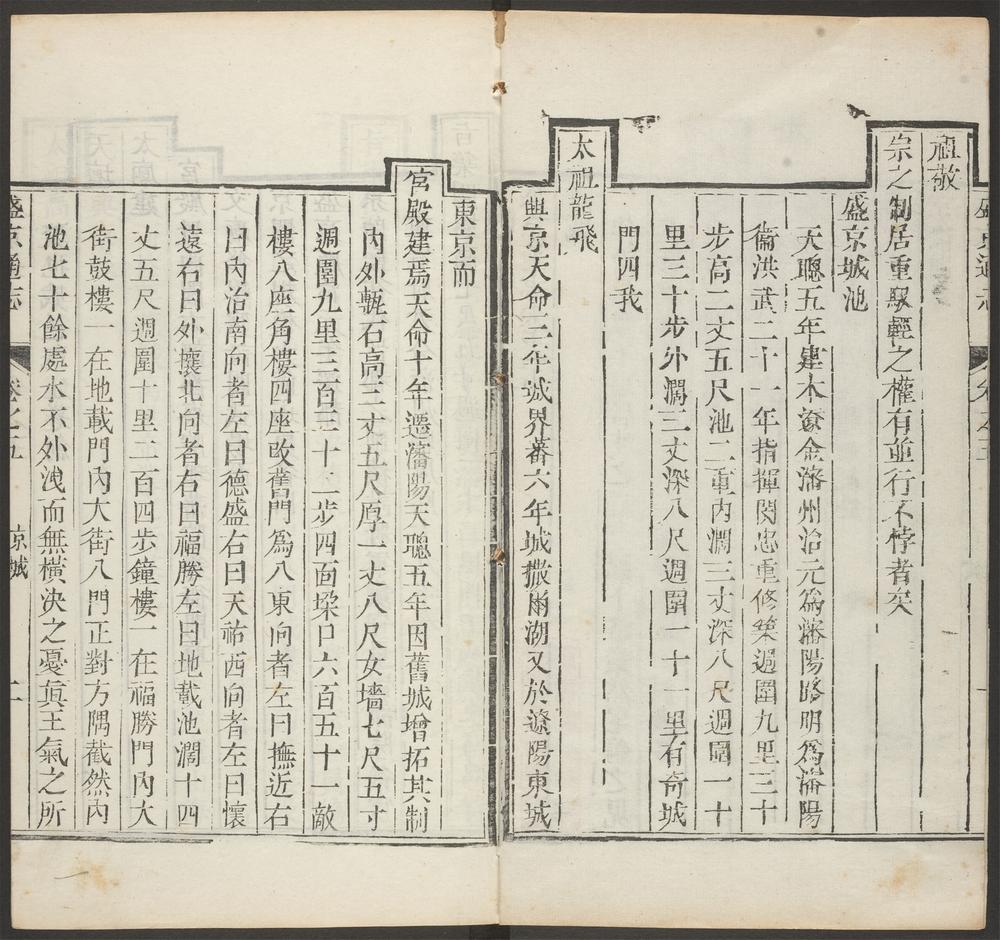 祖敬
宗之制居重馭輕之權有並行不悖者矣
盛京城池
天聰五年建本遼金瀋州治元為瀋陽路明為瀋陽
衞洪武二十一年指揮閔忠重修築週圍九里三十
步高二丈五尺池二重內濶三丈深八尺週圍一十
里三十步外濶三丈深八尺週圍一十一里有奇城
門四我
太祖龍飛
興京天命三年城界蕃六年城撒爾湖又於遼陽東城
東京而
宮殿建焉天命十年遷瀋陽天聰五年因舊城增拓其制
內外甎石高三丈五尺厚一丈八尺女墻七尺五寸
週圍九里三百三十二步四面垜口六百五十一敵
樓八座角樓四座改舊門為八東向者左曰撫近右
曰內治南向者左曰德盛右曰天祐西向者左曰懷
遠右曰外攘北向者右曰福勝左曰地載池濶十四
丈五尺週圍十里二百四步鐘樓一在福勝門內大
街鼓樓一在地載門內大街八門正對方隅截然內
池七十餘處水不外洩而無橫決之憂眞王氣之所
盛京通志 卷之五 京城 二